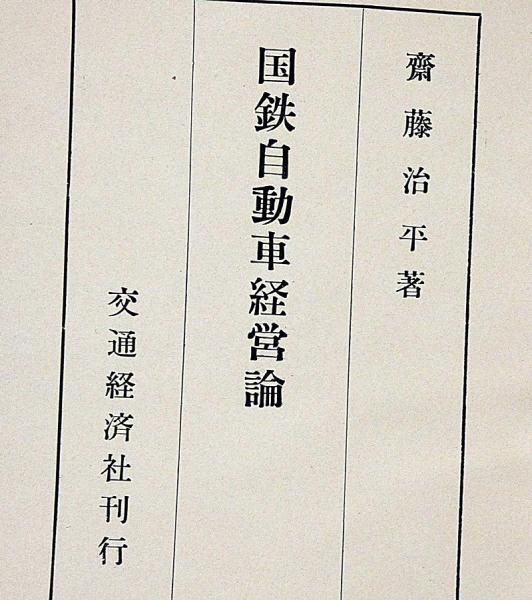 齋藤治平著
国鉄自動車経営論
交通経済社刊行